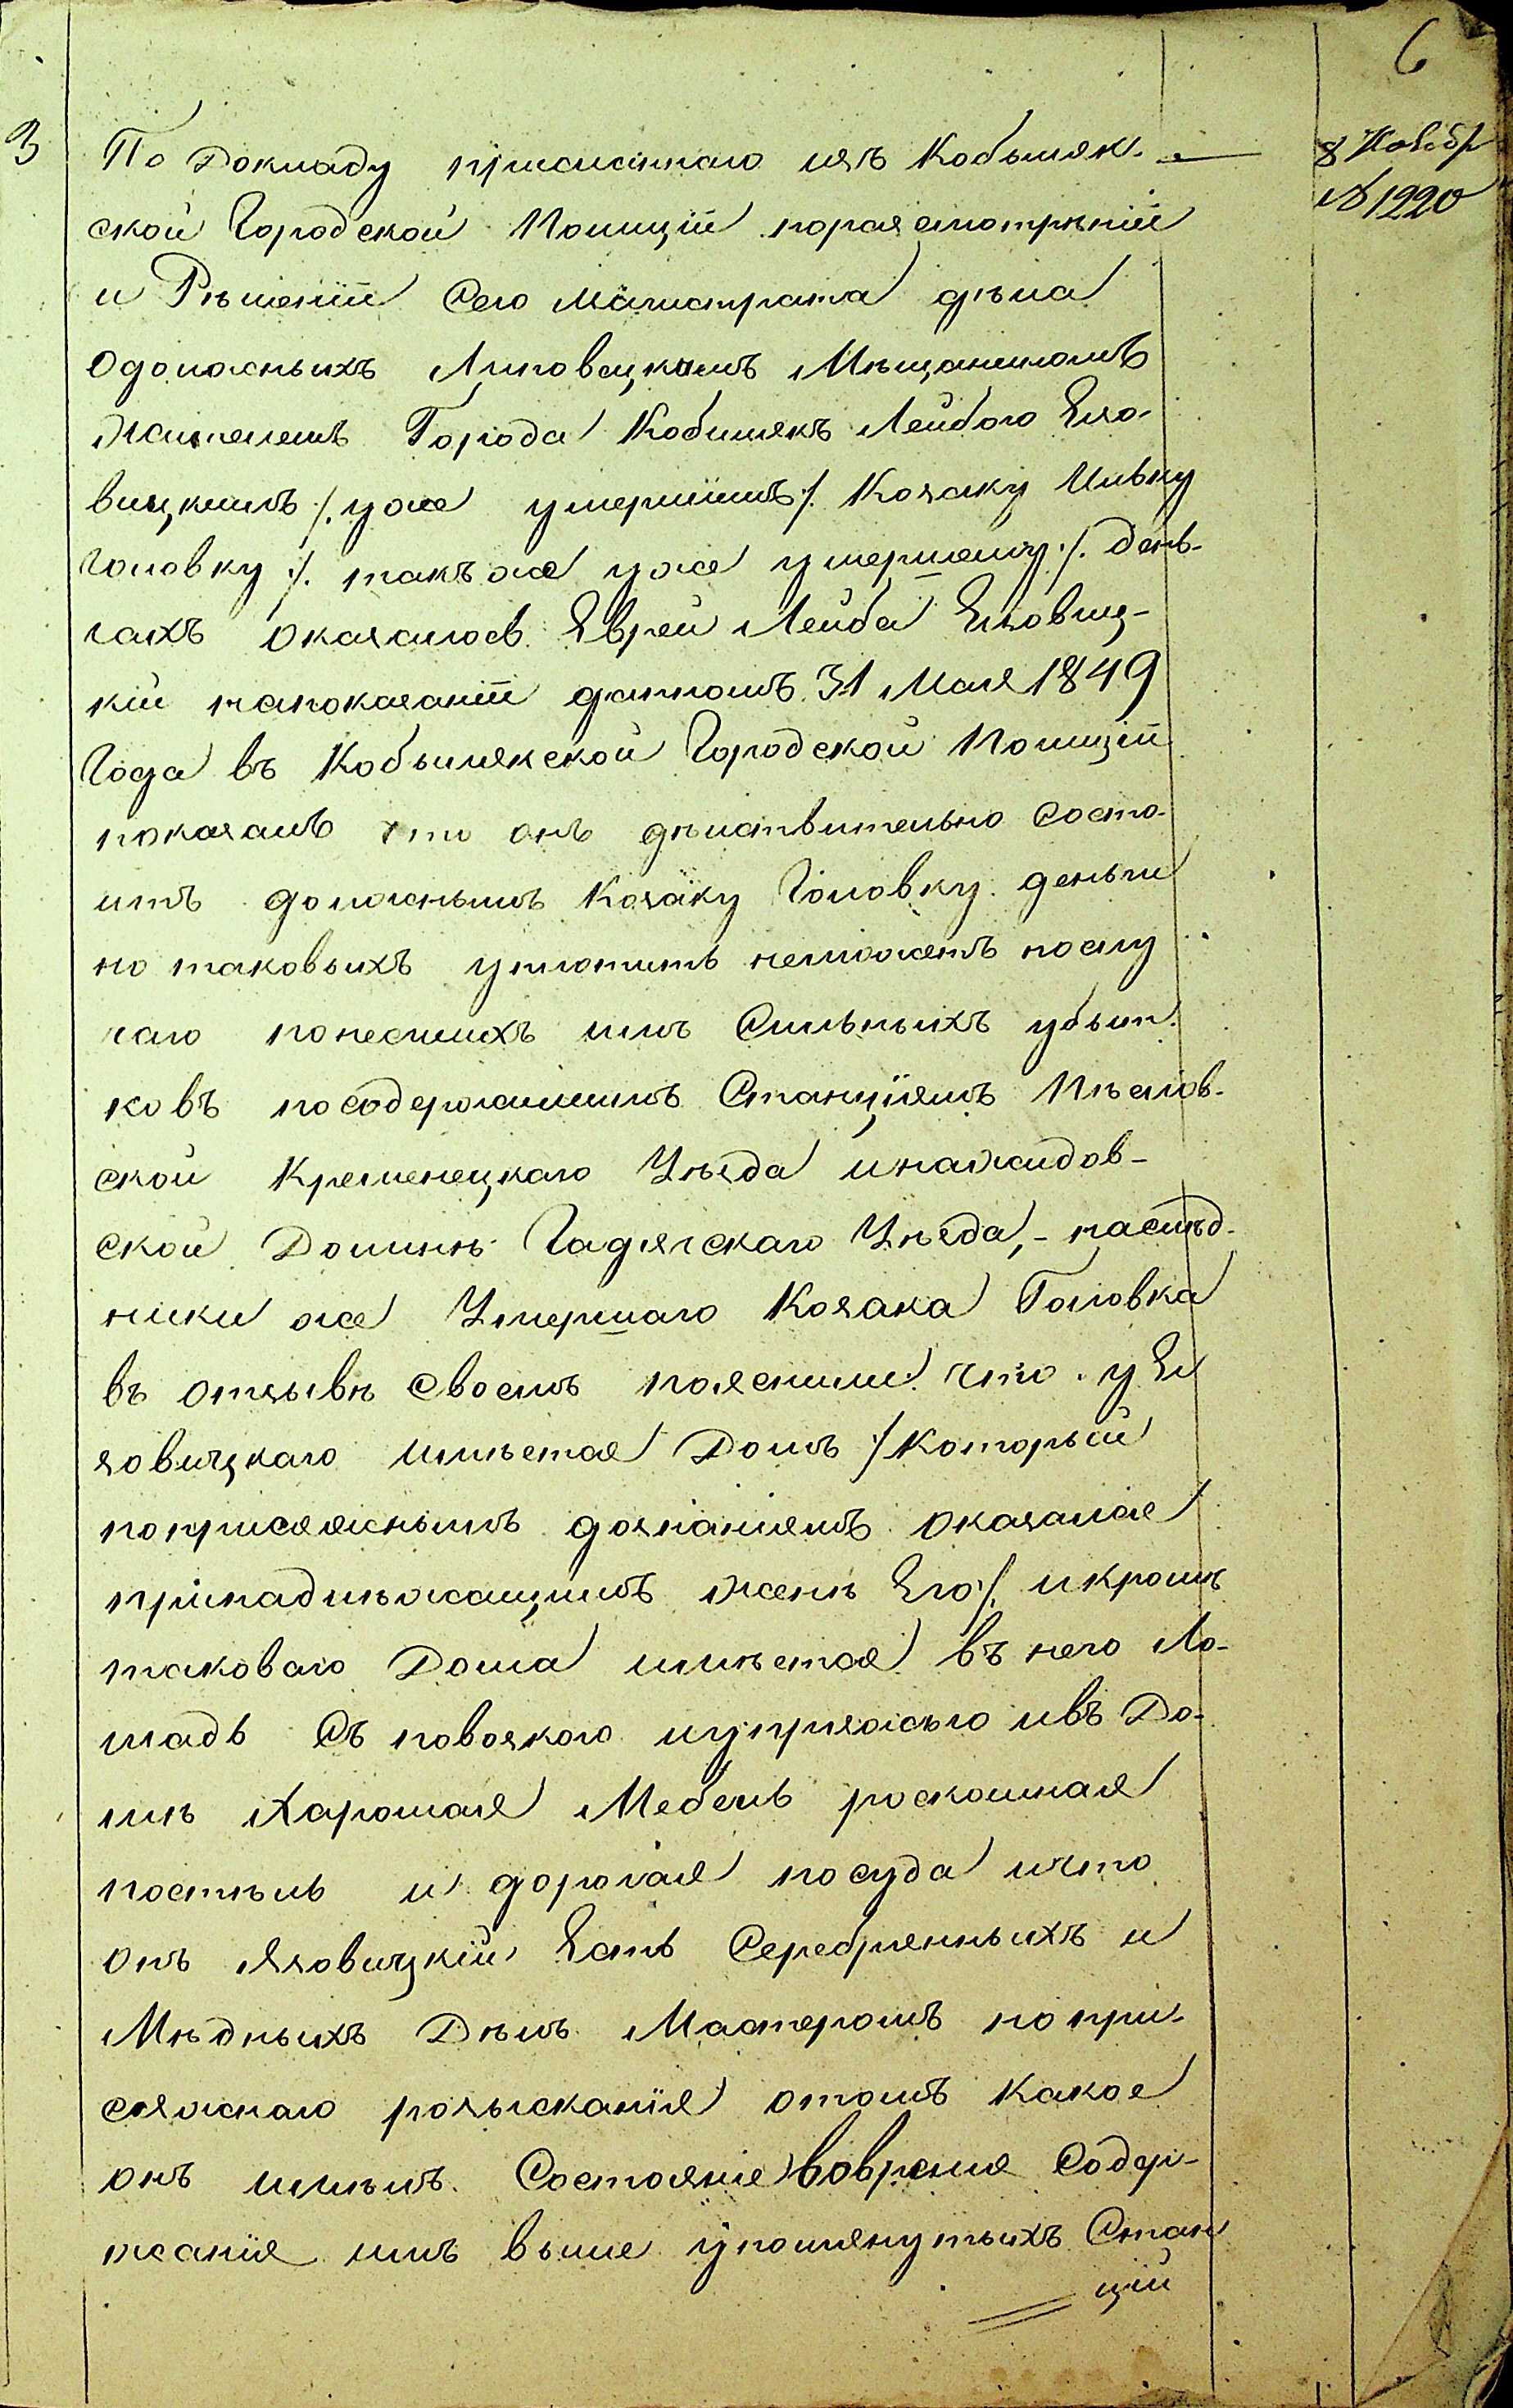 6
3
8 Ноябр
№ 1220
По Докладу присланнаго изъ Кобыляк-
ской Городской Полиціи поразсмотрѣніи
и Рѣшеніи Сего Магистрата дѣла
одолжныхъ Липовецкимъ Мѣщаниномъ
Жителемъ Города Кобылякъ Лейбою Ело-
вицкимъ /. уже умершимъ /. Козаку Ильку
Головку /. такъ же уже умершему /. день-
гахъ оказалось Еврей Лейба Еловиц-
кій напоказаніи данномъ 31 Мая 1849
Года въ Кобылякской Городской Полиціи
показалъ что онъ дѣйствительно состо-
итъ должнымъ Козаку Головку деньги
но таковыхъ уплотить неможетъ послу
чаю понесшихъ имъ Сильныхъ убыт-
ковъ посодержаніямъ Станціямъ
ской Кременецкаго Уѣзда инажидов-
ской Долинѣ Гадячскаго Уѣзда, - наслѣд-
ники же Умершаго Козака Головка
въ отзывѣ своемъ пояснили что у Ел
зовицкаго имѣется Домъ /. Который
поприсяжнымъ дознаніямъ оказался
принадлѣжащимъ женѣ Его /. икромѣ
таковаго Дома имѣется въ него Ло-
шадь Съ повозкою иупряжью ивъ До-
мѣ Харошая Мебель роскошная
постѣль и дорогая посуда ичто
онъ Язовицкій Есть Серебрянныхъ и
Мѣдныхъ Дѣлъ Мастеромъ по при-
сяжнаго розысканія отомъ Какое
онъ имѣлъ Состояніе вовремя Содер-
жанія имъ выше упомянутыхъ Стан
цій